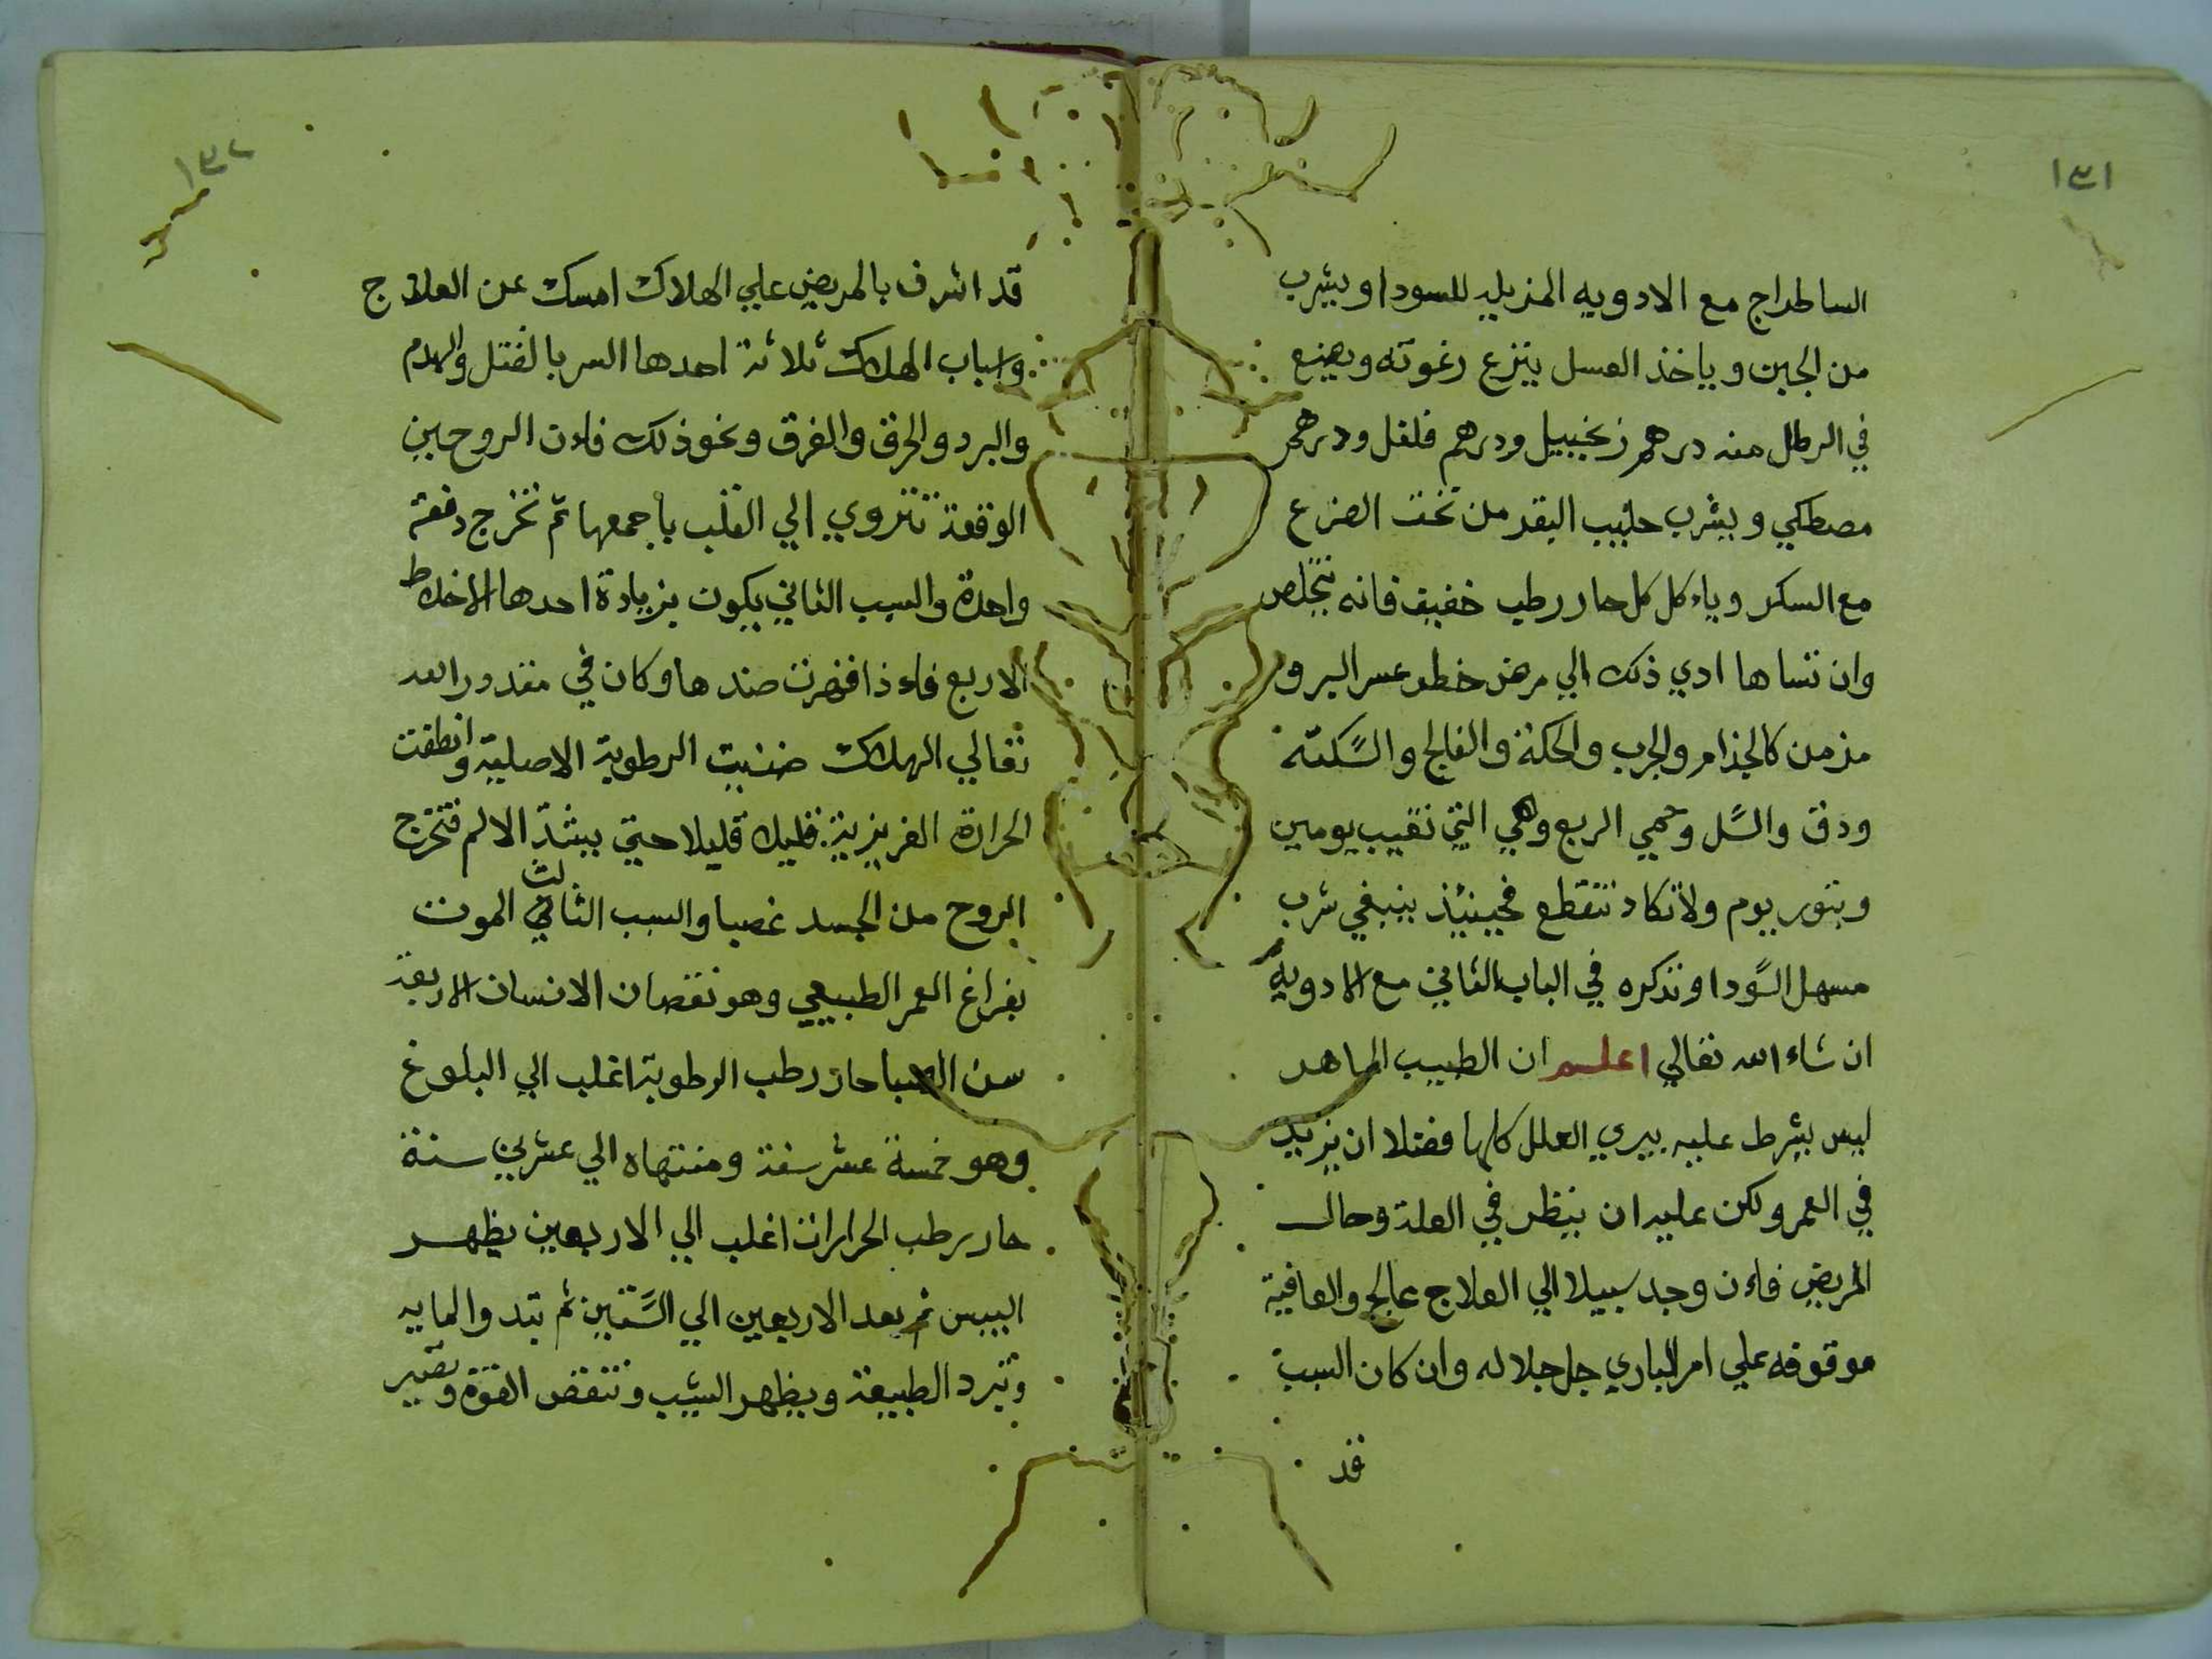 ١٣١
الساطراج مع الادويه المزيله للسودا ويشرب
من الجبن وياخذ العسل ينزع رغوته ويضع
في الرطل منه درهم زنجبيل ودرهم فلفل ودرهم
مصطكي ويشرب حليب البقر من تحت الضرع
مع السكر وياءكل كل حار رطب خفيف فانه يتخلص
وان تساها ادي ذلك الي مرض خطر عسر البرو
مزمن كالجذام والجرب والحكة والفالج والسكته
ودق والسل وحمي الربع وهي التي تغيب يومين
وتنوب يوم ولا تكاد تنقطع فحينيذ ينبغي شرب
مسهل السودا ونذكره في الباب الثاني مع الادوية
ان شاء الله تعالي اعلم ان الطبيب الماهر
ليس يشرط عليه يبري العلل كلها فضلا ان يزيد
في العمر ولكن عليه ان ينظر في العلة وحال
المريض فاءن وجد سبيلا الي العلاج عالج والعافية
موقوفه علي امر الباري جل جلاله وان كان السبب
قد
١٣٢
قد اشرف بالمريض علي الهلاك امسك عن العلاج
واسباب الهلاك ثلاثة احدها السر بالقتل والهدم
والبرد والحرق والغرق ونحو ذلك فاءن الروح حين
الوقعة تنزوي الي القلب باجمعها ثم تخرج دفعة
واحدة والسبب الثاني يكون بزيادة احدها الاخلاط
الاربع فاءذا قهرت ضدها وكان في مقدور الله
تعالي الهلاك ضنيت الرطوبة الاصلية وانطفت
الحرارة الغريزية قليلا قليلا حتي يشتد الالم فتخرج
الروح من الجسد غصبا والسبب الثالث الموت
بفراغ العمر الطبيعي وهو نقصان الانسان الاربعة
سن الصبا حار رطب الرطوبة اغلب الي البلوغ
وهو خمسة عشر سنة ومنتهاه الي عشرين سنة
حار رطب الحرارات اغلب الي الاربعين يظهر
اليبس ثم بعد الاربعين الي الستين ثم تبدو المايه
وتبرد الطبيعة ويظهر الشيب وتنقض القوة وتصير